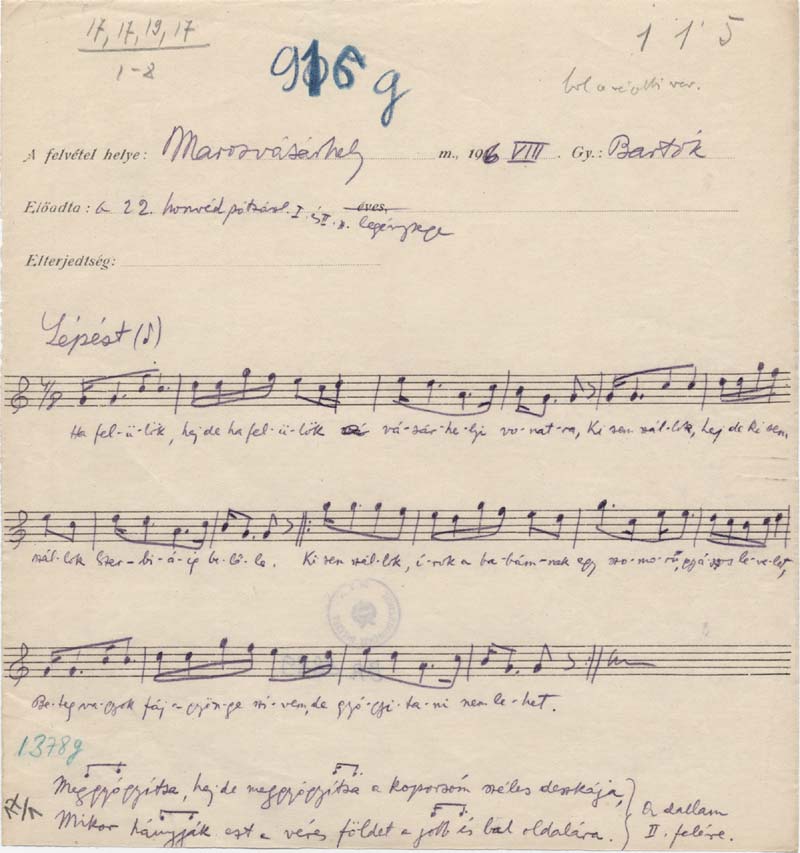 17, 17, 19, 17
1-8
1 1 5
916 g
A felvétel helye: Marosvásárhely m., 1916 VIII. Gy.: Bartók
Előadta: a 22. honvéd pótzászl. I. és II. sz. éves, legénysége
Elterjedtség:
Lépést (♪)
Ha fel-ü-lök, hej de ha fel-ü-lök vá-sár-he-lyi vo-nat-ra, Ki sem szál-lok, hej de ki sem
szál-lok Szer-bi-á-ig be-lő-le. Ki sem szál-lok, í-rok a ba-bám-nak egy szo-mo-rú, gyá-szos le-ve-let,
Be-teg va-gyok fáj a gyön-ge szí-vem, de gyó-gyí-ta-ni nem le-het.
1378g
Meggyógyítsa, hej de meggyógyítsa a koporsóm széles deszkája,
Mikor hányják ezt a véres földet a jobb és bal oldalára.
a dallam
II. felére.